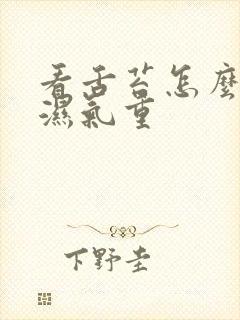 看舌苔怎麼
濕氣重
下野圭